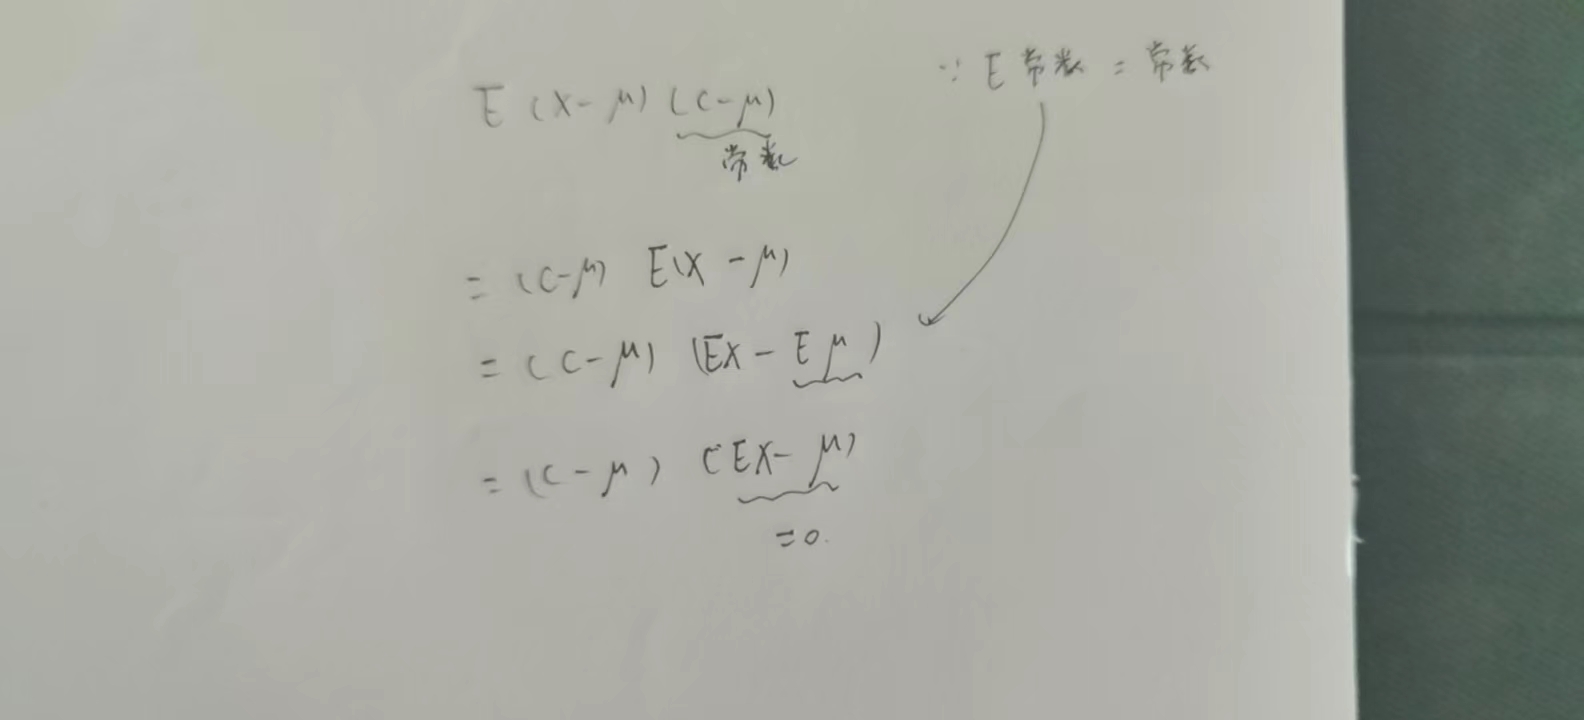 E (X-μ) (C-μ)
常数
∵ E 常数 = 常数
= (C-μ) E(X-μ)
= (C-μ) (EX-Eμ)
= (C-μ) (EX-μ)
=0.